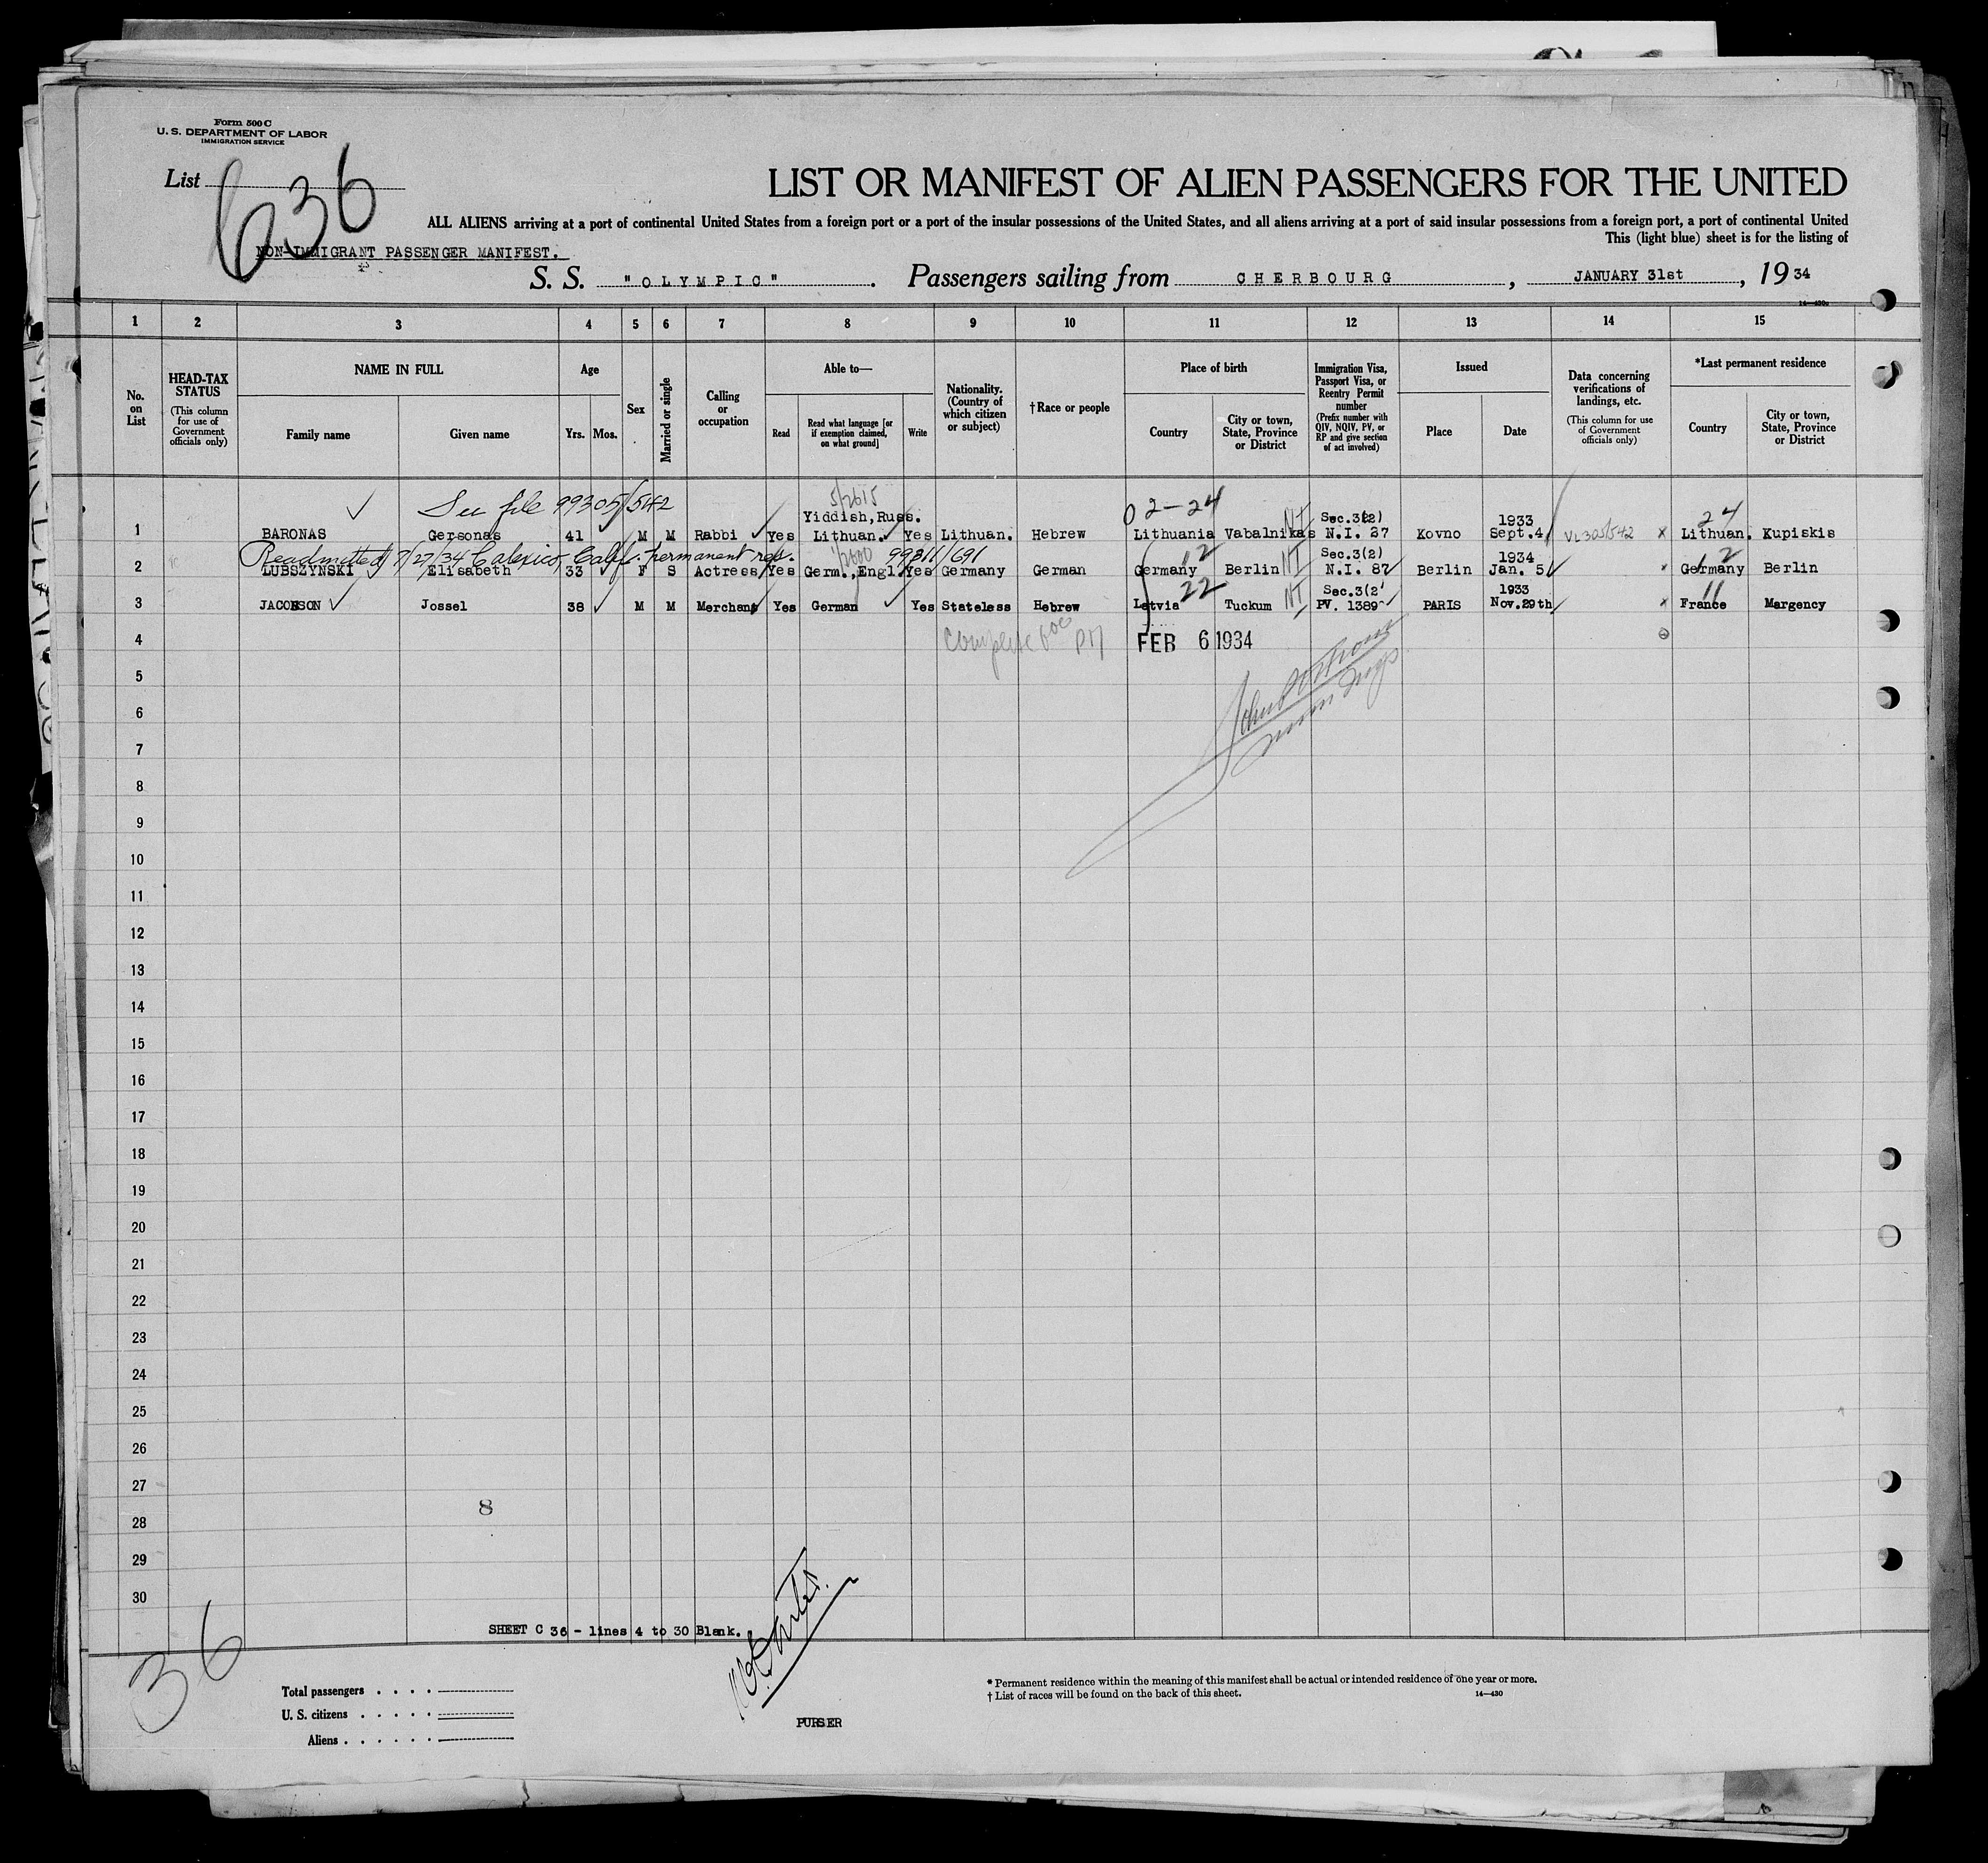 Form 500 C
U. S. DEPARTMENT OF LABOR
IMMIGRATION SERVICE
List 636
LIST OR MANIFEST OF ALIEN PASSENGERS FOR THE UNITED
ALL ALIENS arriving at a port of continental United States from a foreign port or a port of the insular possessions of the United States, and all aliens arriving at a port of said insular possessions from a foreign port, a port of continental United
This (light blue) sheet is for the listing of
NON-IMMIGRANT PASSENGER MANIFEST.
S. S. "OLYMPIC". Passengers sailing from CHERBOURG, JANUARY 31st, 1934
1 2 3 4 5 6 7 8 9 10 11 12 13 14 15
No. on List
HEAD-TAX STATUS
(This column for use of Government officials only)
NAME IN FULL
Family name
Given name
Age
Yrs. Mos.
Sex
Married or single
Calling or occupation
Able to—
Read
Read what language [or if exemption claimed, on what ground]
Write
Nationality. (Country of which citizen or subject)
† Race or people
Place of birth
Country
City or town, State, Province or District
Immigration Visa, Passport Visa, or Reentry Permit number
(Prefix number with QIV, NQIV, PV, or RP and give section of act involved)
Issued
Place
Date
Data concerning verifications of landings, etc.
(This column for use of Government officials only)
*Last permanent residence
Country
City or town, State, Province or District
See file 99305/542 5/2615 02-24 24
Yiddish, Russ. Sec.3(2) 1933
1 BARONAS Gersonas 41 M M Rabbi Yes Lithuan. Yes Lithuan. Hebrew Lithuania Vabalnikas N.I. 27 Kovno Sept.4 Lithuan. Kupiskis
Readmitted 7/27/34 Calexico, Calif. permanent res. 99811/691 12 Sec.3(2) 1934 12
2 LUBSZYNSKI Elisabeth 33 F S Actress Yes Germ.,Engl. Yes Germany German Germany Berlin N.I. 87 Berlin Jan. 5 Germany Berlin
22 Sec.3(2) 1933 11
3 JACOBSON Jossel 38 M M Merchant Yes German Yes Stateless Hebrew Latvia Tuckum PV. 1389 PARIS Nov.29th France Margency
4 FEB 6 1934
5
6
7
8
9
10
11
12
13
14
15
16
17
18
19
20
21
22
23
24
25
26
27
8
28
29
30
SHEET C 36 - lines 4 to 30 Blank.
36
Total passengers
U. S. citizens
Aliens
PURSER
* Permanent residence within the meaning of this manifest shall be actual or intended residence of one year or more.
† List of races will be found on the back of this sheet.
14—430